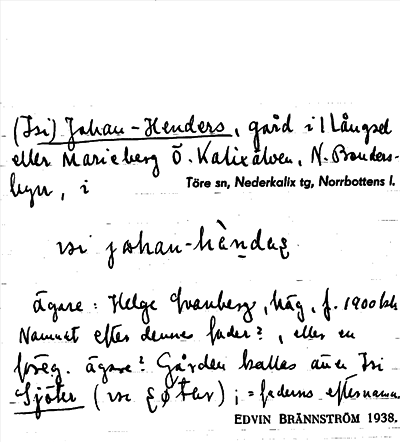 (Isi) Johan-Henders, gård i Långsel
eller Marieberg Ö. Kalixälven, N. Bondersbyn, i
Töre sn, Nederkalix tg, Norrbottens l.
isi johan-hàndaʂ
ägare: Helge Granberg, häg, f. 1900 tal.
Namnet efter dennes fader?, eller en
föreg. ägare? Gården kallas även Isi
Sjöter (isi ʂøtar) i = faderns efternamn.
EDVIN BRÄNNSTRÖM 1938.